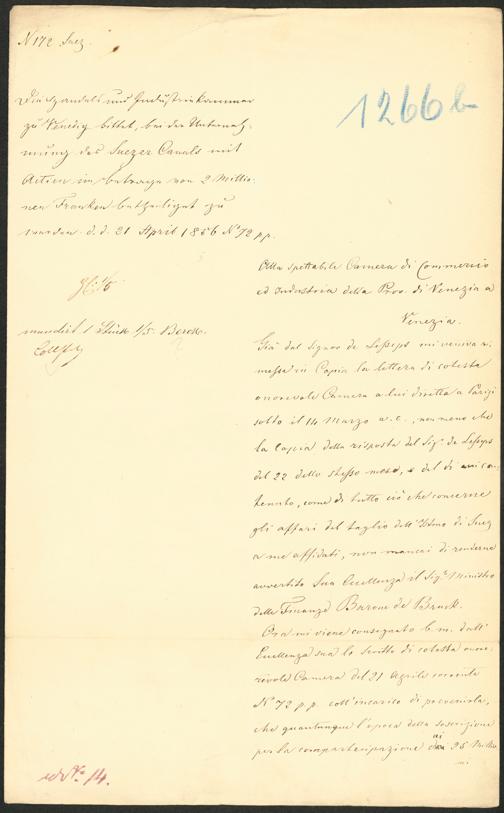 N 172 Suez.
1266 b
Die Handels und Industriekammer
zu Venedig bittet, bei der Unterneh-
mung des Suezer Canals mit
Actien im betrage von 2 Millio-
nen Franken betheiligt zu
werden. d. d. 21 April 1856 N° 72 p.p.
mundirt 1 Stück 1/5
Alla spettabile Camera di Commercio
ed Industria della Prov. di Venezia a
Venezia.
Già dal Signor de Lesseps mi veniva ri-
messa in Copia la lettera di cotesta
onorevole Camera a lui diretta a Parigi
sotto il 14 Marzo a. c., non meno che
la Copia della risposta del Sigr de Lesseps
del 22 dello stesso mese, e del di cui con-
tenuto, come di tutto ciò che concerne
gli affari del taglio dell'Istmo di Suez
a me affidati, non mancai di renderne
avvertito Sua Eccellenza il Sigr Ministro
delle Finanze Barone de Bruck.
Ora mi viene consegnato b. m. dall'
Eccellenza sua lo scritto di cotesta onor-
evole Camera del 21 Aprile corrente
N° 72 p.p. coll'incarico di
che quantunque l'epoca della soscrizione
per la compartecipazione ai 25 Millio-
ni
N° 14.